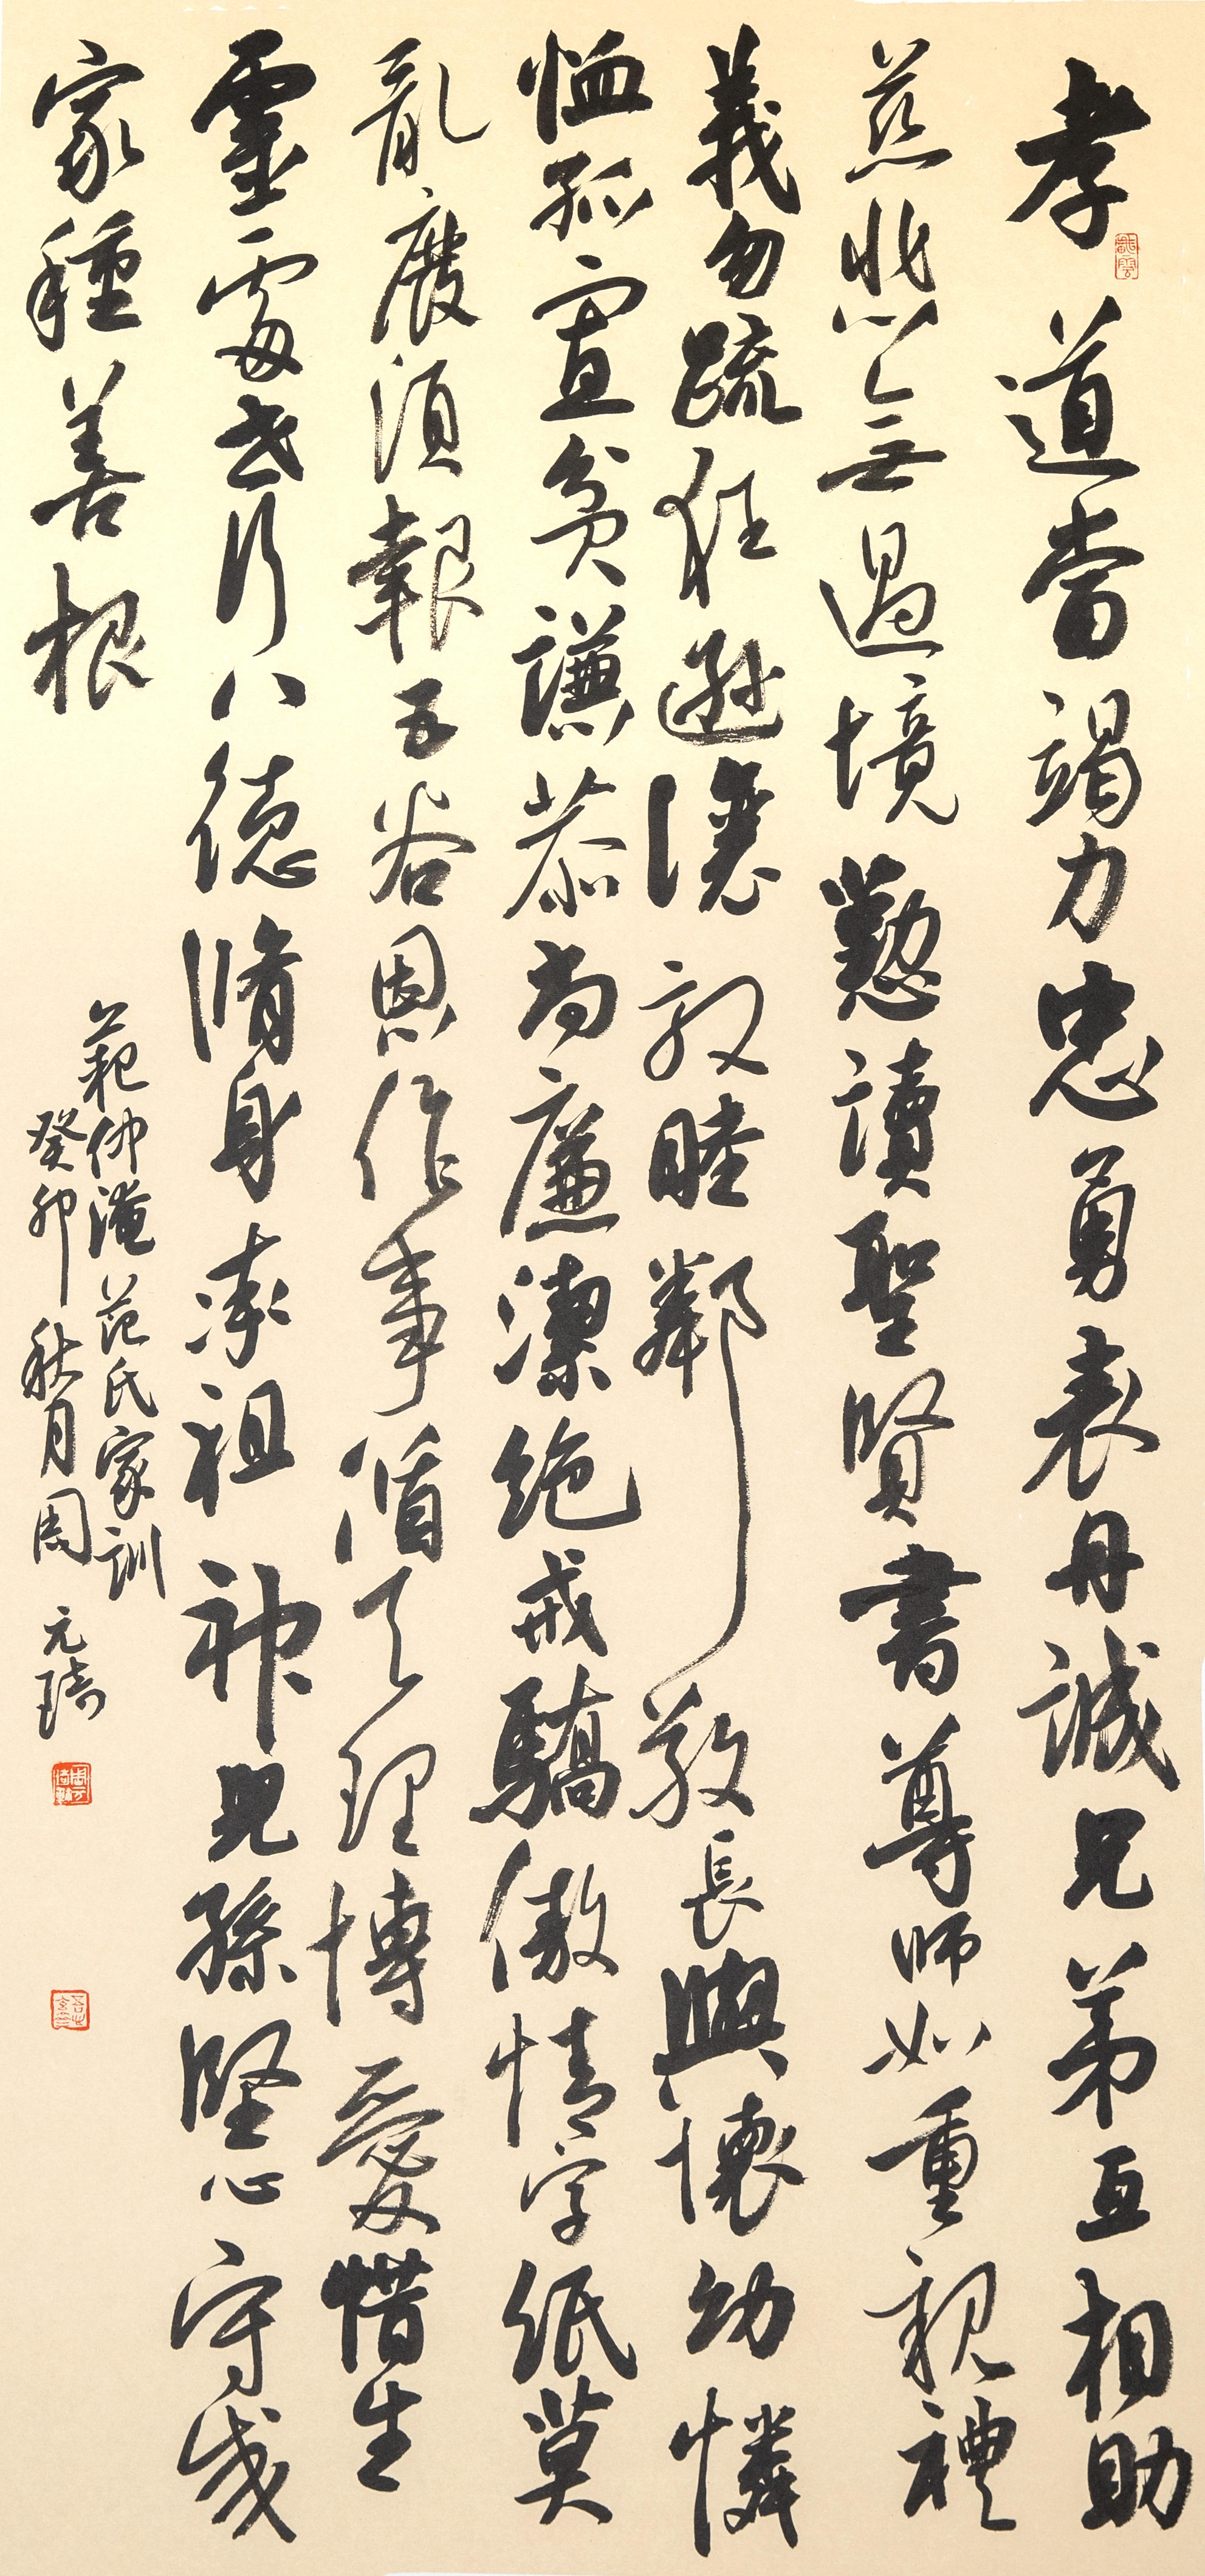 孝道當竭力忠勇表丹誠兄弟互相助
慈悲無過境懃讀聖賢書尊師如重親禮
義勿疏狂遜讓敦睦鄰敬長與懷幼憐
恤孤寡貧謙恭尚廉潔絕戒驕傲情字紙莫
亂廢須報五谷恩作事循天理博愛惜生
靈處世行八德脩身率祖神兒孫堅心守成
家種善根
範仲淹范氏家訓
癸卯秋月周元琦